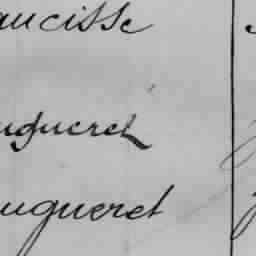 aucisse
ugueret
ugueret